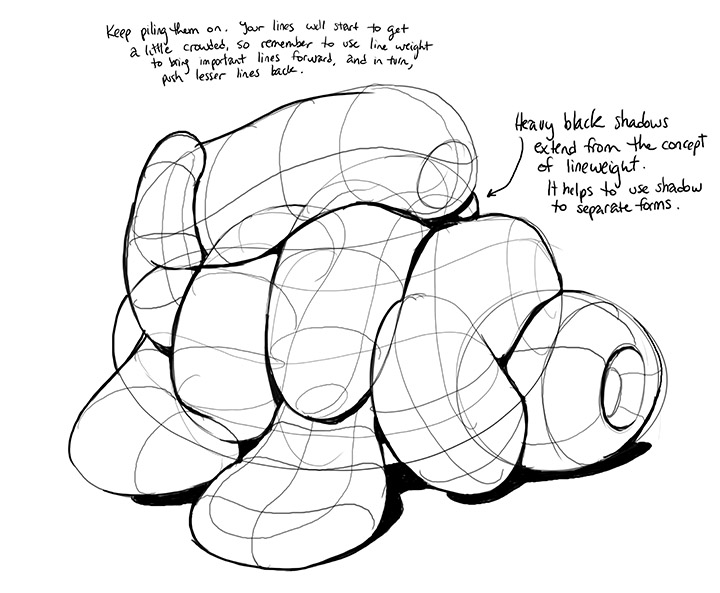 Keep piling them on. Your lines will start to get
a little crowded, so remember to use line weight
to bring important lines forward, and in turn,
push lesser lines back.
Heavy black shadows
extend from the concept
of lineweight.
It helps to use shadow
to separate forms.